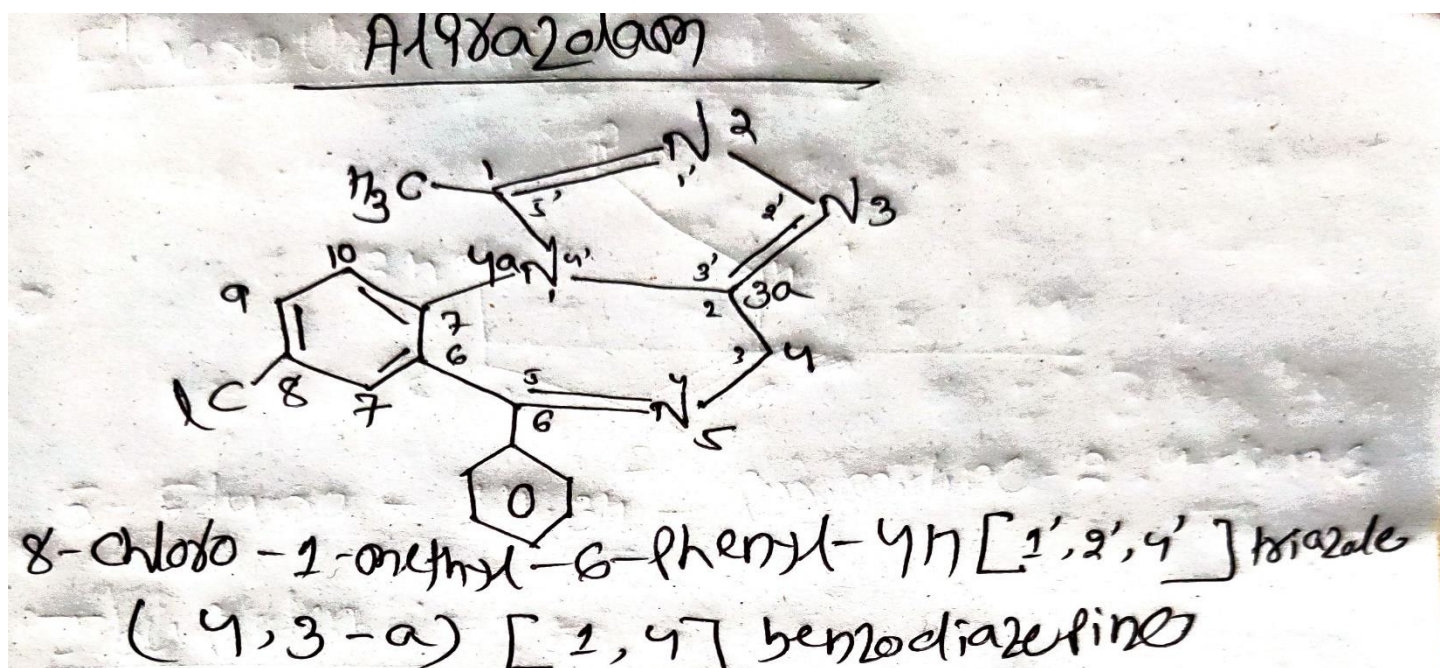 Alprazolam
1
N 2
H3C
5'
1'
2'
N3
10
4a N 4'
3'
3a
9
1
2
7
6
3
4
5
4
lC 8
7
6
N
5
8-Chloro-1-methyl-6-Phenyl-4H [1',2',4'] triazole
(4,3-a) [1,4] benzodiazepines